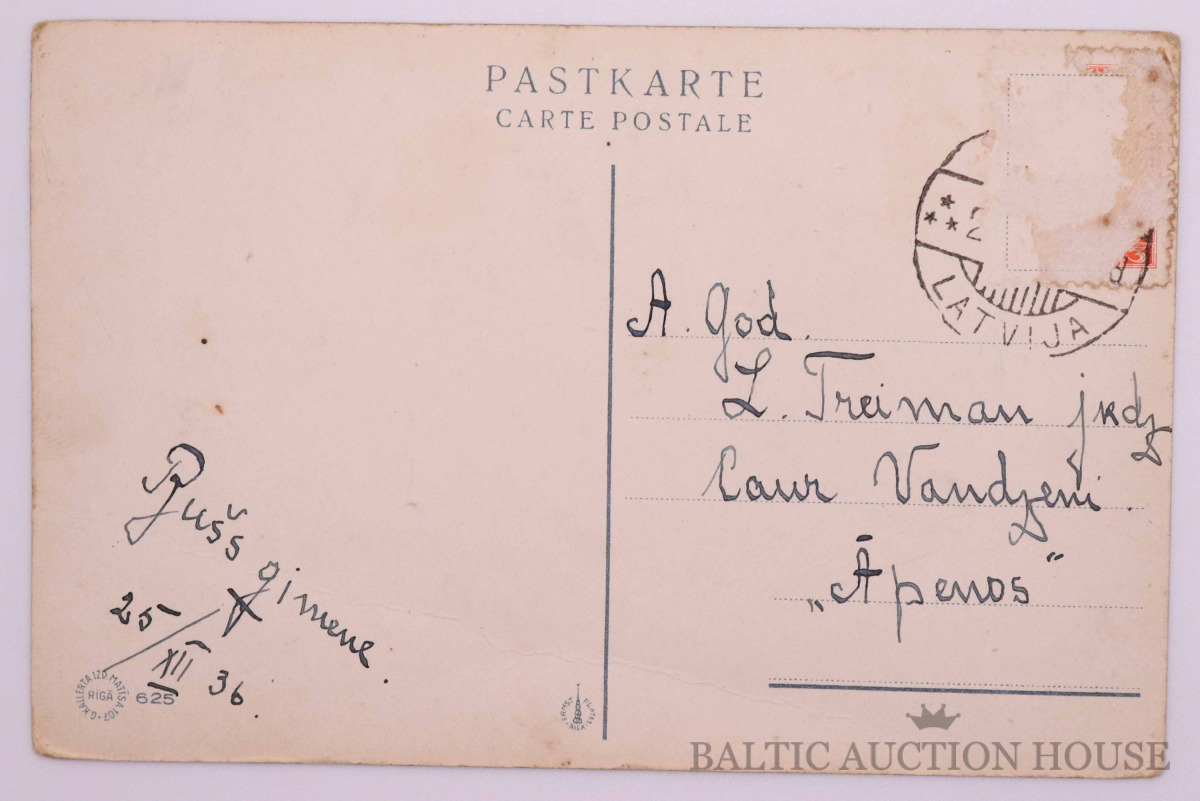 PASTKARTE
CARTE POSTALE
LATVIJA
A. God.
L. Treiman jkdz
Caur Vandzeni.
„Āpenos“
gimene.
25
XII 36
G. KALLERTA IZD. MATĪSA 107
RĪGĀ
625
BALTIC AUCTION HOUSE